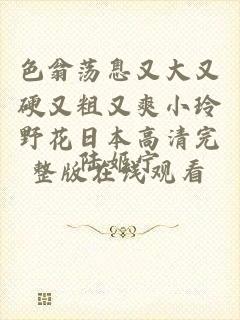 色翁荡息又大又
硬又粗又爽小玲
野花日本高清完
整版在线观看
陆姬宁